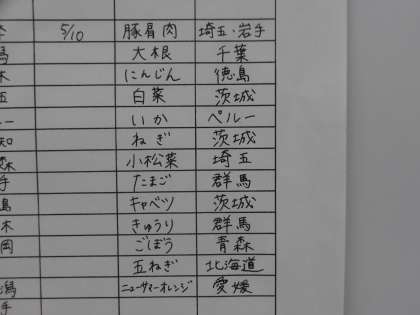 5/10 豚肩肉 埼玉・岩手
馬 大根 千葉
木 にんじん 徳島
玉 白菜 茨城
いか ペルー
知 ねぎ 茨城
森 小松菜 埼玉
手 たまご 群馬
島 キャベツ 茨城
木 きゅうり 群馬
岡 ごぼう 青森
玉ねぎ 北海道
潟 ニューサマーオレンジ 愛媛
手